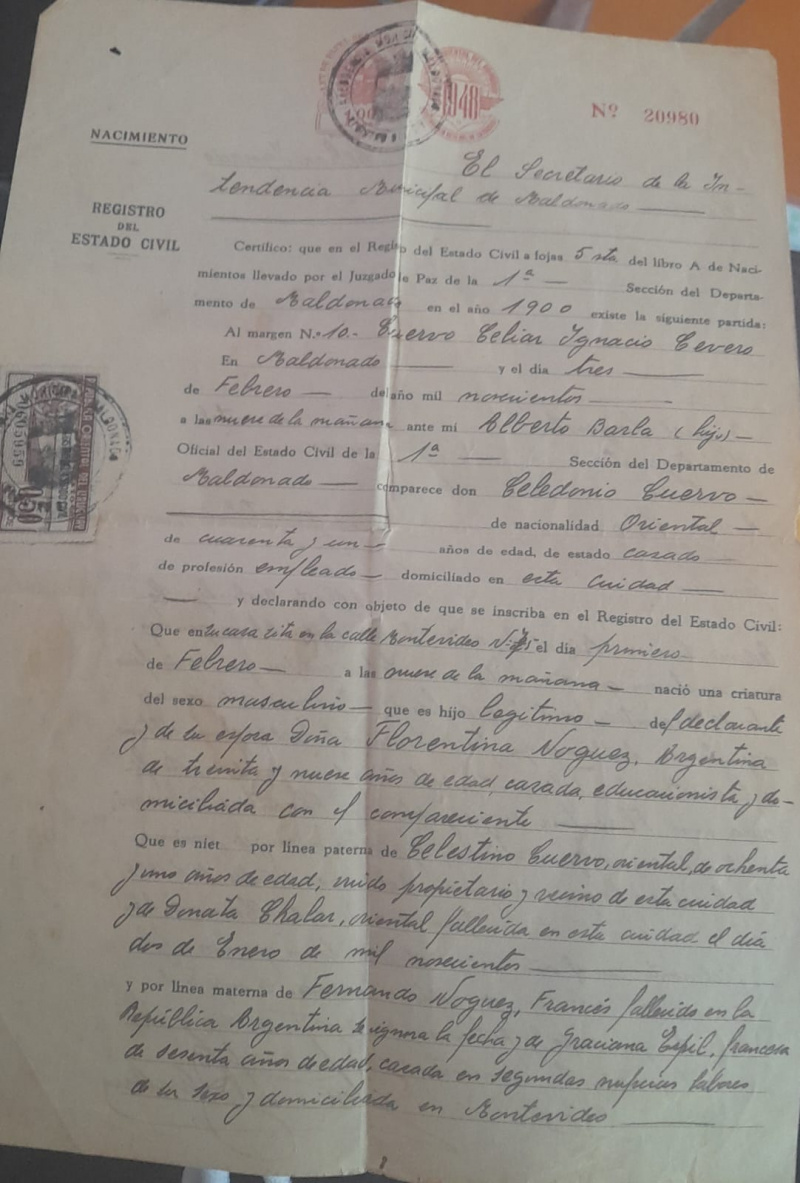 INTENDENCIA MUNICIPAL MALDONADO
1948
Nº 20980
NACIMIENTO
REGISTRO
DEL
ESTADO CIVIL
El Secretario de la In-
tendencia Municipal de Maldonado
Certifico: que en el Registro del Estado Civil a fojas 5 vta del libro A de Naci-
mientos llevado por el Juzgado de Paz de la 1ª Sección del Departa-
mento de Maldonado en el año 1900 existe la siguiente partida:
Al margen N.º 10.- Cuervo Celiar Ignacio Cevero
En Maldonado y el dia tres
de Febrero del año mil novecientos
a las nueve de la mañana ante mi Alberto Barla (hijo)
Oficial del Estado Civil de la 1ª Sección del Departamento de
Maldonado comparece don Celedonio Cuervo
de nacionalidad Oriental
de cuarenta y un años de edad, de estado casado
de profesión empleado domiciliado en esta ciudad
y declarando con objeto de que se inscriba en el Registro del Estado Civil:
Que en su casa sita en la calle Montevideo el dia primero
de Febrero a las nueve de la mañana nació una criatura
del sexo masculino que es hijo legítimo del declarante
y de su esposa Doña Florentina Noguez, Argentina
de treinta y nueve años de edad, casada, educacionista y do-
miciliada con el compareciente
Que es niet por línea paterna de Celestino Cuervo, oriental, de ochenta
y uno años de edad, viudo propietario y vecino de esta ciudad
y de Donata Chalar, oriental fallecida en esta ciudad el día
dos de Enero de mil novecientos
y por línea materna de Fernando Noguez, Francés fallecido en la
República Argentina se ignora la fecha y de Graciana Espil, francesa
de sesenta años de edad, casada en segundas nupcias labores
de su sexo y domiciliada en Montevideo